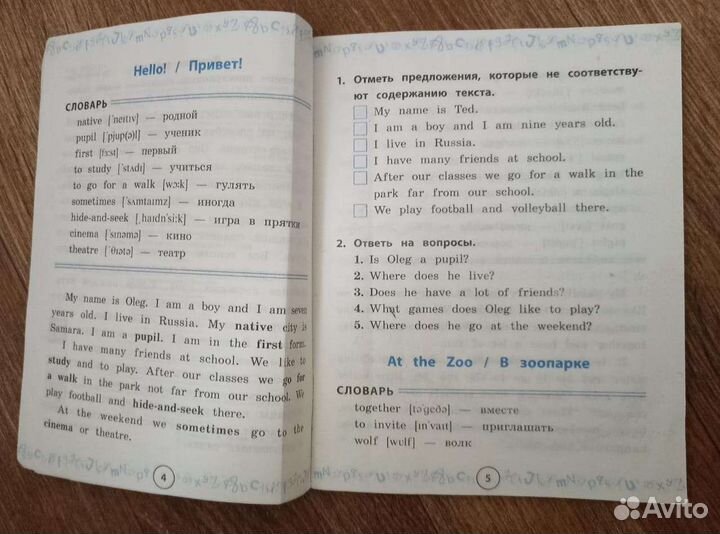 Hello! / Привет!
СЛОВАРЬ
native ['neɪtɪv] — родной
pupil ['pjup(ə)l] — ученик
first [fɜːst] — первый
to study ['stʌdɪ] — учиться
to go for a walk [wɔːk] — гулять
sometimes ['sʌmtaɪmz] — иногда
hide-and-seek [ˌhaɪdn'siːk] — игра в прятки
cinema ['sɪnəmə] — кино
theatre ['θɪətə] — театр
My name is Oleg. I am a boy and I am seven
years old. I live in Russia. My native city is
Samara. I am a pupil. I am in the first form.
I have many friends at school. We like to
study and to play. After our classes we go for
a walk in the park not far from our school. We
play football and hide-and-seek there.
At the weekend we sometimes go to the
cinema or theatre.
4
1. Отметь предложения, которые не соответству-
ют содержанию текста.
My name is Ted.
I am a boy and I am nine years old.
I live in Russia.
I have many friends at school.
After our classes we go for a walk in the
park far from our school.
We play football and volleyball there.
2. Ответь на вопросы.
1. Is Oleg a pupil?
2. Where does he live?
3. Does he have a lot of friends?
4. What games does Oleg like to play?
5. Where does he go at the weekend?
At the Zoo / В зоопарке
СЛОВАРЬ
together [tə'geðə] — вместе
to invite [ɪn'vaɪt] — приглашать
wolf [wʊlf] — волк
5
Avito